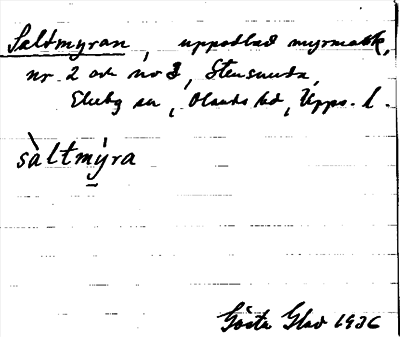 Saltmyran, uppodlad myrmark,
nr 2 och nr 3, Stensunda,
Ekeby sn, Olands hd, Upps. l.
sàltmý̠ra
Gösta Glad 1936